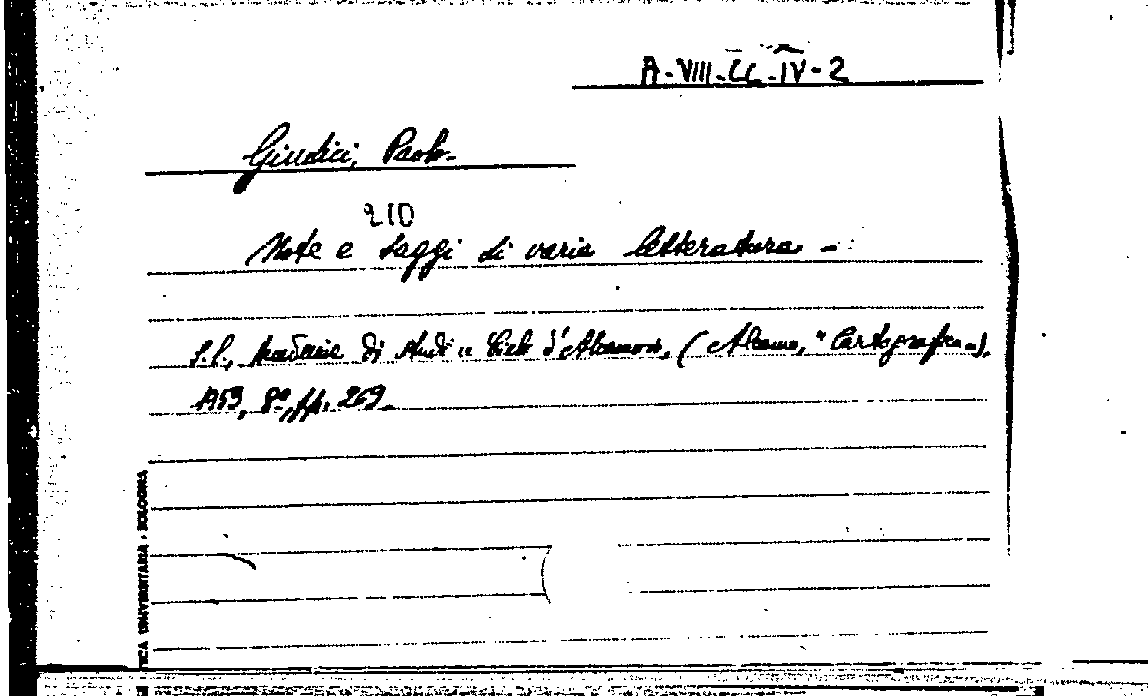 A-VIII-CC-IV-2
Giudici, Paolo-
210
Note e saggi di varia letteratura -
S.l., Accademia di Studi "Cielo d'Alcamo", (Alcamo, "Cartografica"),
1953, 8°, pp. 269-
TICA UNIVERSITARIA - BOLOGNA